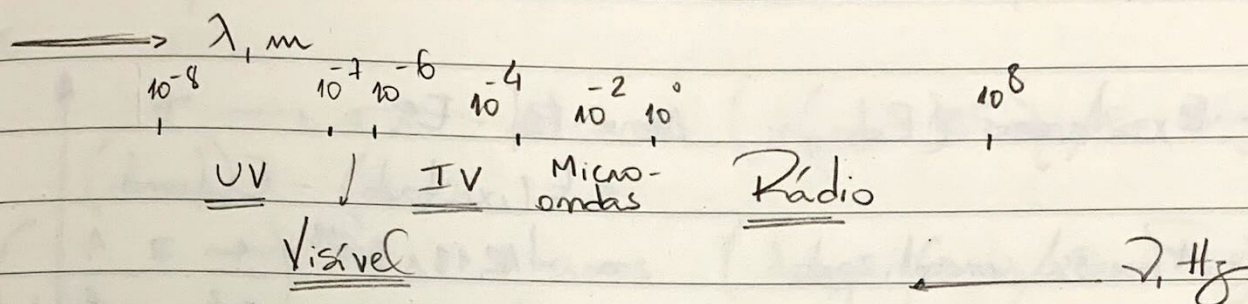 λ, m
10⁻⁸ 10⁻⁷ 10⁻⁶ 10⁻⁴ 10⁻² 10⁰ 10⁸
UV IV Micro-ondas Rádio
Visível
ν, Hz